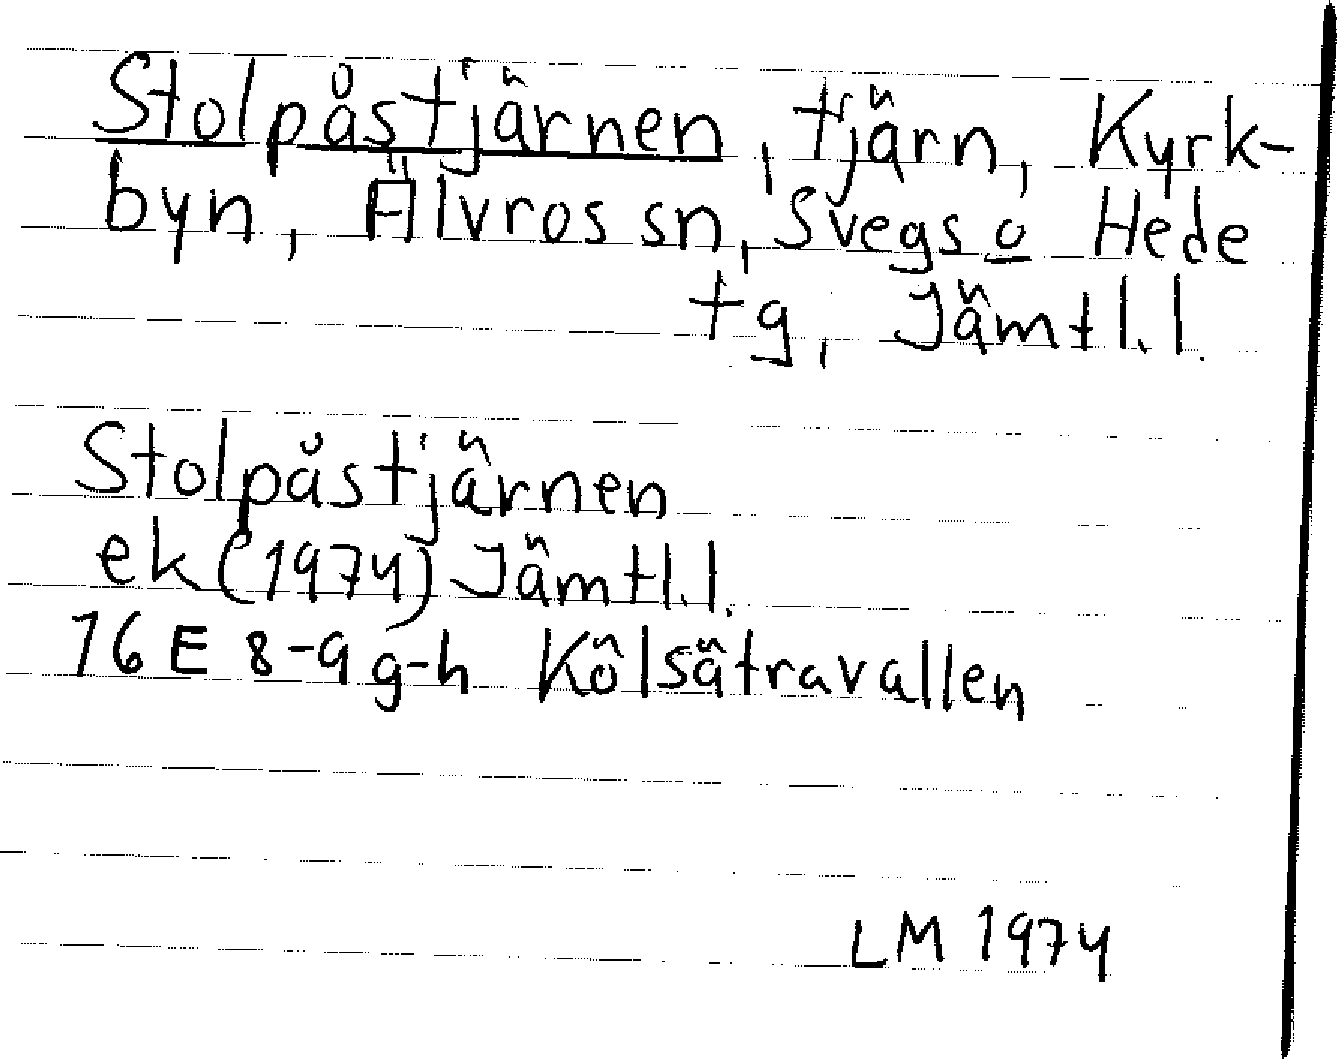 Stolpåstjärnen, tjärn, Kyrk-
byn, Älvros sn, Svegs o Hede
tg, Jämtl.l.
Stolpåstjärnen
ek (1974) Jämtl.l.
16 E 8-9 g-h Kölsätravallen
LM 1974